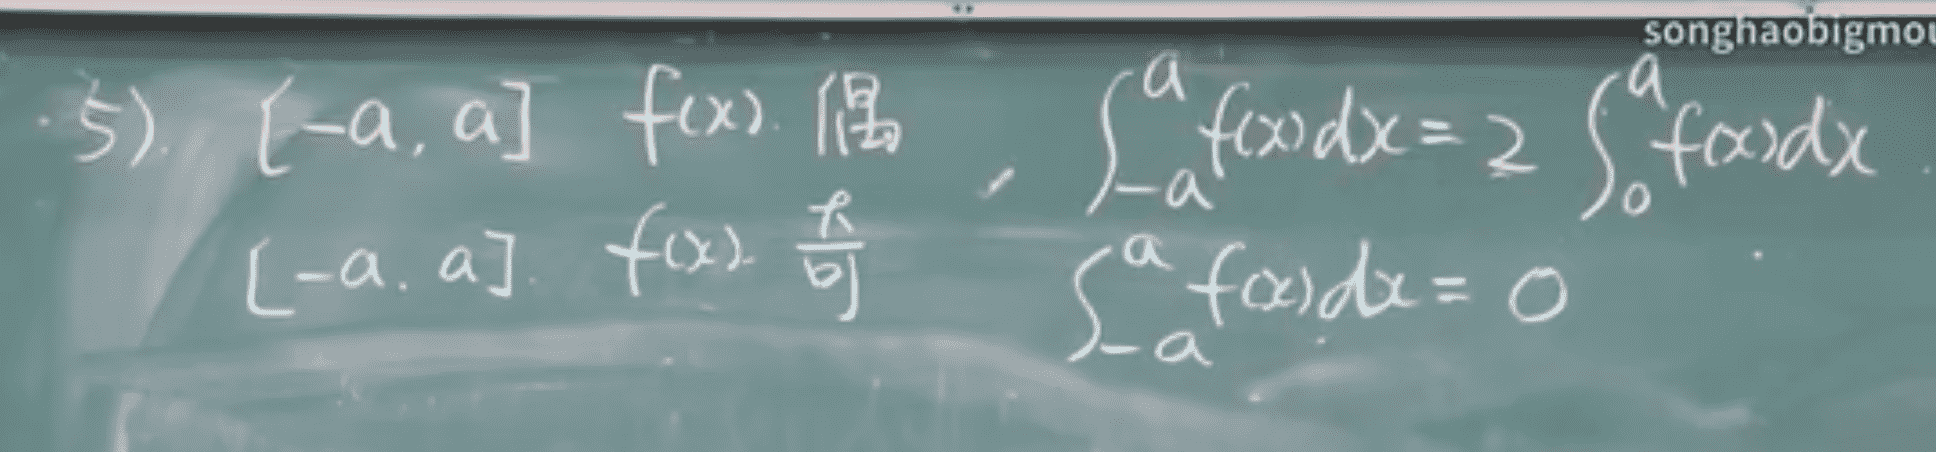 songhaobigmou
5). [-a, a] f(x). 偶, ∫_{-a}^{a} f(x)dx = 2 ∫_{0}^{a} f(x)dx.
[-a. a]. f(x). 奇 ∫_{-a}^{a} f(x)dx = 0